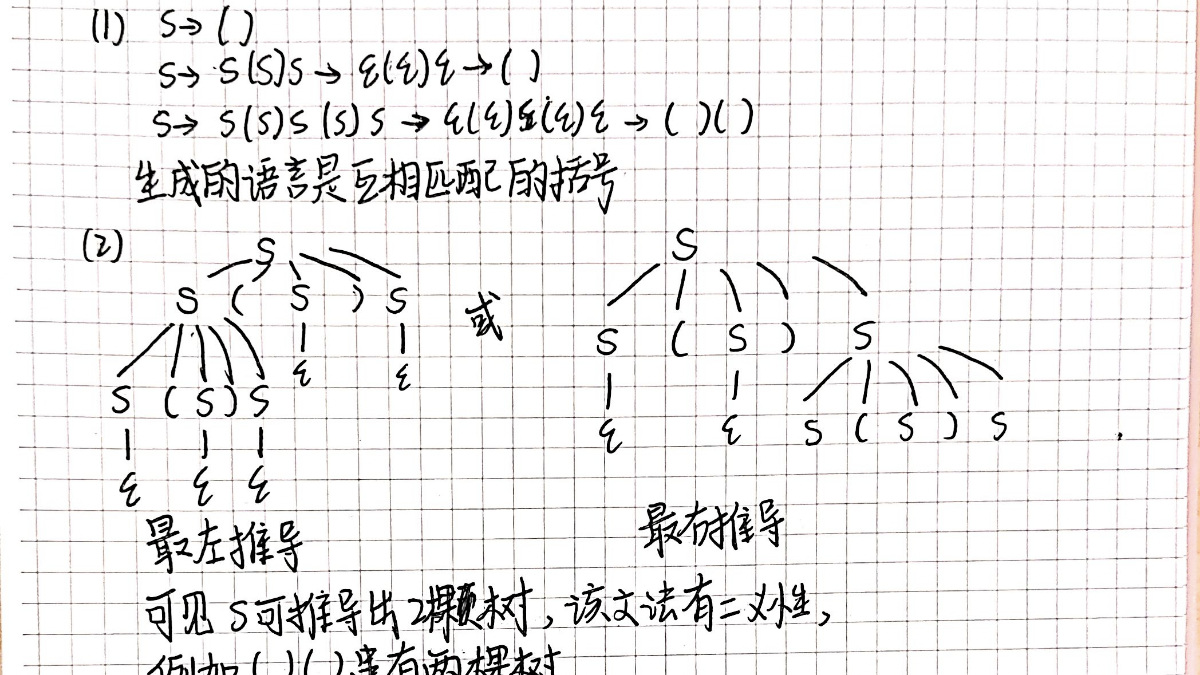 (1) S→ ( )
S→ S(S)S → ε(ε)ε → ( )
S→ S(S)S(S)S → ε(ε)ε(ε)ε → ( )( )
生成的语言是互相匹配的括号
(2)
S S
S ( S ) S 或 S ( S ) S
S ( S ) S ε ε ε ε S ( S ) S
ε ε ε
最左推导 最右推导
可见 S可推导出2颗树,该文法有二义性,
例如( )( )串有两棵树